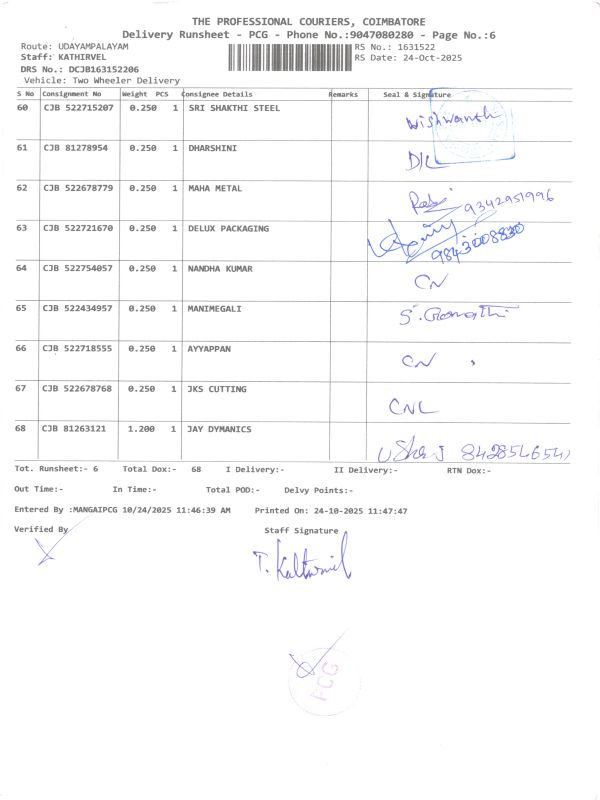 THE PROFESSIONAL COURIERS, COIMBATORE
Delivery Runsheet - PCG - Phone No.:9047080280 - Page No.:6
Route: UDAYAMPALAYAM RS No.: 1631522
Staff: KATHIRVEL RS Date: 24-Oct-2025
DRS No.: DCJB163152206
Vehicle: Two Wheeler Delivery
S No Consignment No Weight PCS Consignee Details Remarks Seal & Signature
60 CJB 522715207 0.250 1 SRI SHAKTHI STEEL Wishwanth
61 CJB 81278954 0.250 1 DHARSHINI D/L
62 CJB 522678779 0.250 1 MAHA METAL 9342951996
63 CJB 522721670 0.250 1 DELUX PACKAGING 9843008830
64 CJB 522754057 0.250 1 NANDHA KUMAR CN
65 CJB 522434957 0.250 1 MANIMEGALI S. Gomathi
66 CJB 522718555 0.250 1 AYYAPPAN CN
67 CJB 522678768 0.250 1 JKS CUTTING CNL
68 CJB 81263121 1.200 1 JAY DYMANICS
Tot. Runsheet:- 6 Total Dox:- 68 I Delivery:- II Delivery:- RTN Dox:-
Out Time:- In Time:- Total POD:- Delvy Points:-
Entered By :MANGAIPCG 10/24/2025 11:46:39 AM Printed On: 24-10-2025 11:47:47
Verified By Staff Signature
PCG